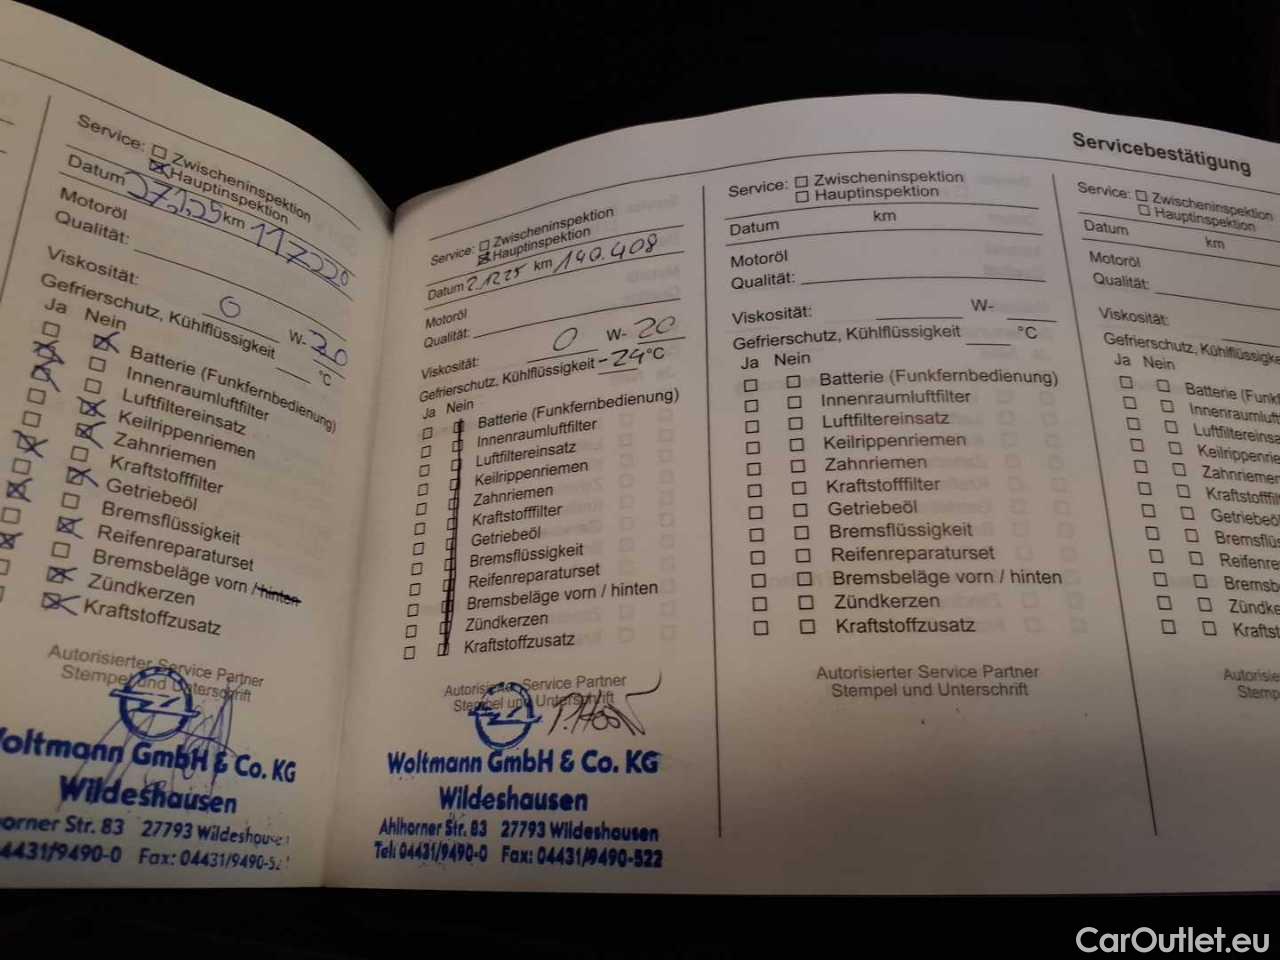 Servicebestätigung
Service: Zwischeninspektion
Hauptinspektion
Datum 27.1.25 km 117220
Motoröl
Qualität:
Viskosität: 0 W- 20
Gefrierschutz, Kühlflüssigkeit °C
Ja Nein
Batterie (Funkfernbedienung)
Innenraumluftfilter
Luftfiltereinsatz
Keilrippenriemen
Zahnriemen
Kraftstofffilter
Getriebeöl
Bremsflüssigkeit
Reifenreparaturset
Bremsbeläge vorn / hinten
Zündkerzen
Kraftstoffzusatz
Autorisierter Service Partner
Stempel und Unterschrift
Woltmann GmbH & Co. KG
Wildeshausen
orner Str. 83 27793 Wildeshause
4431/9490-0 Fax: 04431/9490-52
Service: Zwischeninspektion
Hauptinspektion
Datum 2.12.25 km 140.408
Motoröl
Qualität:
Viskosität: 0 W- 20
Gefrierschutz, Kühlflüssigkeit -24 °C
Ja Nein
Batterie (Funkfernbedienung)
Innenraumluftfilter
Luftfiltereinsatz
Keilrippenriemen
Zahnriemen
Kraftstofffilter
Getriebeöl
Bremsflüssigkeit
Reifenreparaturset
Bremsbeläge vorn / hinten
Zündkerzen
Kraftstoffzusatz
Autorisierter Service Partner
Stempel und Unterschrift
Woltmann GmbH & Co. KG
Wildeshausen
Ahlhorner Str. 83 27793 Wildeshausen
Tel: 04431/9490-0 Fax: 04431/9490-522
Service: Zwischeninspektion
Hauptinspektion
Datum km
Motoröl
Qualität:
Viskosität: W-
Gefrierschutz, Kühlflüssigkeit °C
Ja Nein
Batterie (Funkfernbedienung)
Innenraumluftfilter
Luftfiltereinsatz
Keilrippenriemen
Zahnriemen
Kraftstofffilter
Getriebeöl
Bremsflüssigkeit
Reifenreparaturset
Bremsbeläge vorn / hinten
Zündkerzen
Kraftstoffzusatz
Autorisierter Service Partner
Stempel und Unterschrift
Service: Zwischeninspektion
Hauptinspektion
Datum km
Motoröl
Qualität:
Viskosität:
Gefrierschutz, Kühlflüssigke
Ja Nein
Batterie (Funkf
Innenraumluftf
Luftfiltereinsa
Keilrippenrie
Zahnriemen
Kraftstofffil
Getriebeö
Bremsflüs
Reifenre
Bremsb
Zündke
Kraftst
Autorisie
Stemp
CarOutlet.eu